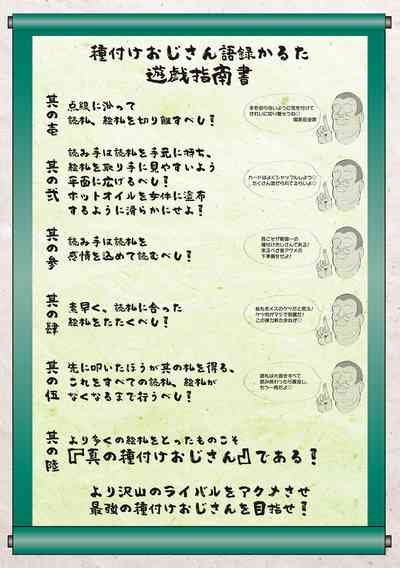 種付けおじさん語録かるた
遊戯指南書
其の壱
点線に沿って
読札、絵札を切り離すべし！
其の弐
読み手は読札を手元に持ち、
絵札を取り手に見やすいよう
平面に広げるべし！
ホットオイルを女体に塗布
するように滑らかにせよ！
カードはよくシャッフルしよう♡
たくさん混ぜられてえらいよ♡
其の参
読み手は読札を
感情を込めて読むべし！
其の肆
素早く、読札に合った
絵札をたたくべし！
其の伍
先に叩いたほうが其の札を得る、
これをすべての読札、絵札が
なくなるまで行うべし！
其の陸
より多くの絵札をとったものこそ
『真の種付けおじさん』である！
より沢山のライバルをアクメさせ
最強の種付けおじさんを目指せ！